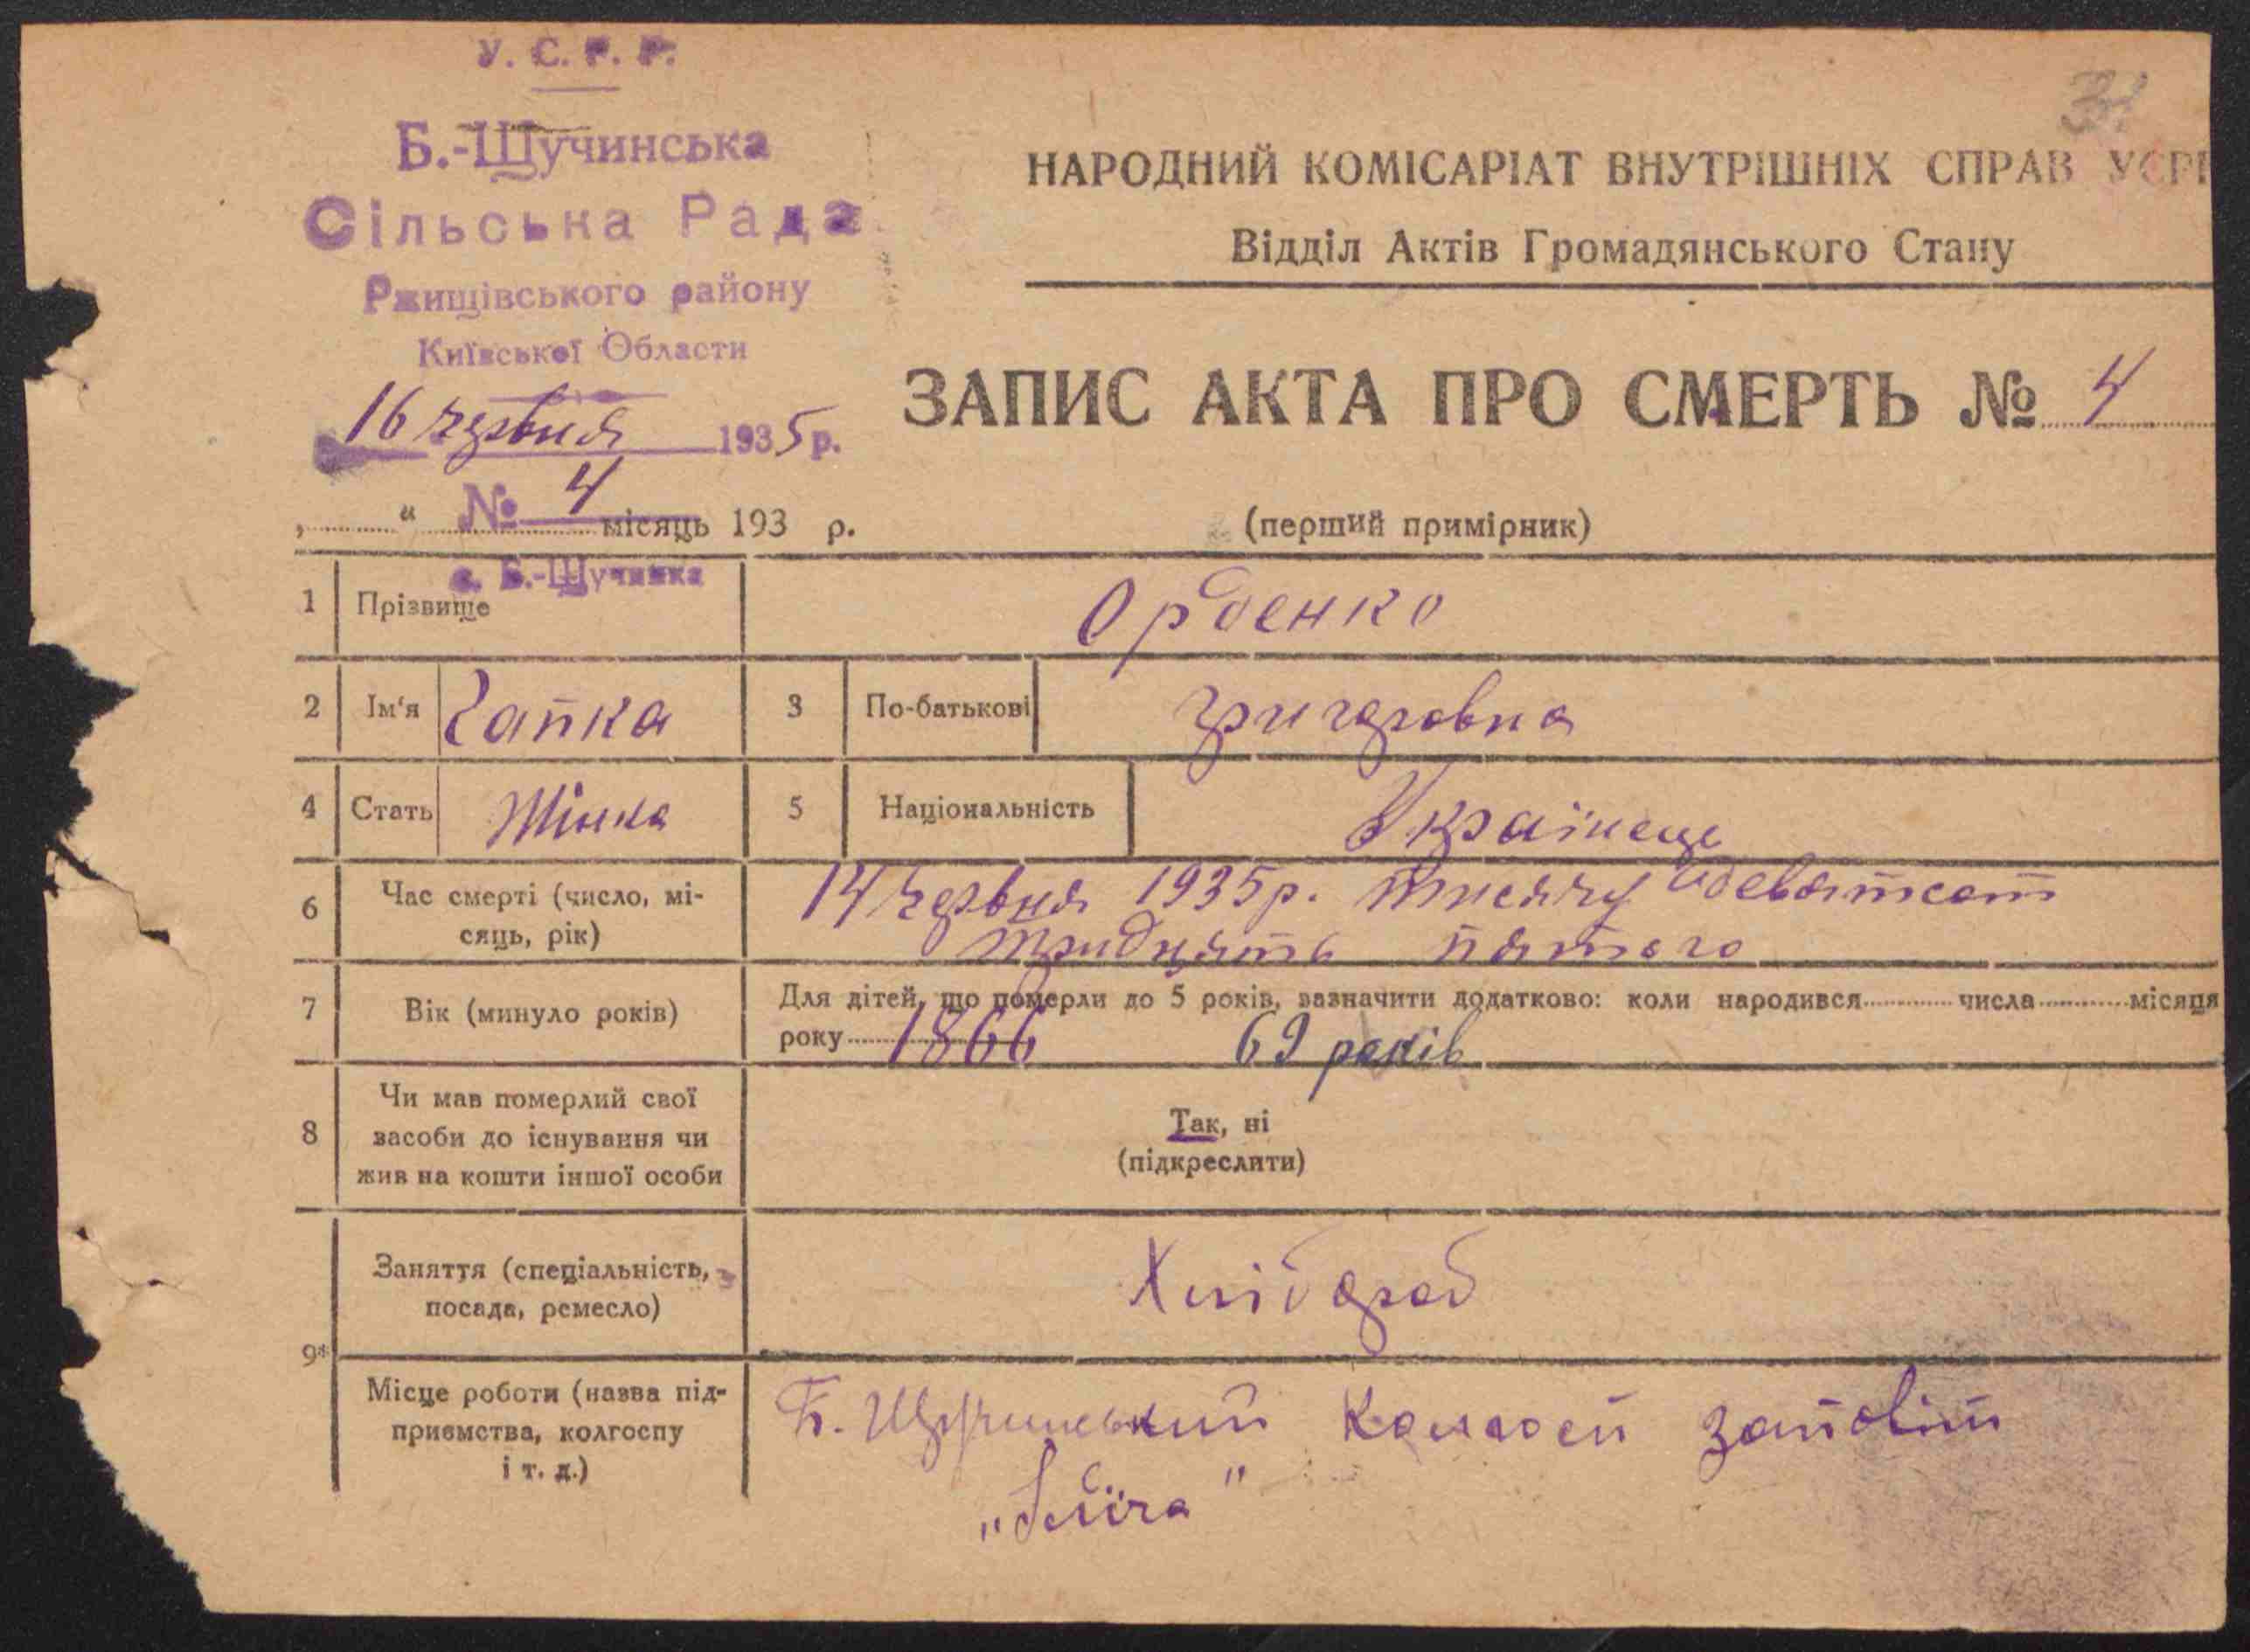 У. С. Р. Р.
Б.-Щучинська
Сільська Рада
Ржищівського району
Київської Области
16 червня 1935 р.
№ 4
„ “ місяць 193 р.
с. Б.-Щучинка
НАРОДНИЙ КОМІСАРІАТ ВНУТРІШНІХ СПРАВ УСРР
Відділ Актів Громадянського Стану
ЗАПИС АКТА ПРО СМЕРТЬ № 4
(перший примірник)
1 Прізвище Орденко
2 Ім'я Гапка 3 По-батькові Григоровна
4 Стать Жінка 5 Національність Українець
6 Час смерті (число, мі-
сяць, рік)
14 червня 1935р. тисячу девятсот
тридцять пятого
7 Вік (минуло років)
Для дітей, що померли до 5 років, зазначити додатково: коли народився числа місяця
року 1866 69 років
8 Чи мав померлий свої
засоби до існування чи
жив на кошти іншої особи
Так, ні
(підкреслити)
9* Заняття (спеціальність,
посада, ремесло)
Хлібороб
Місце роботи (назва під-
приємства, колгоспу
і т. д.)
Б. Щучинський Колгосп Заповіт
„Ілліча"